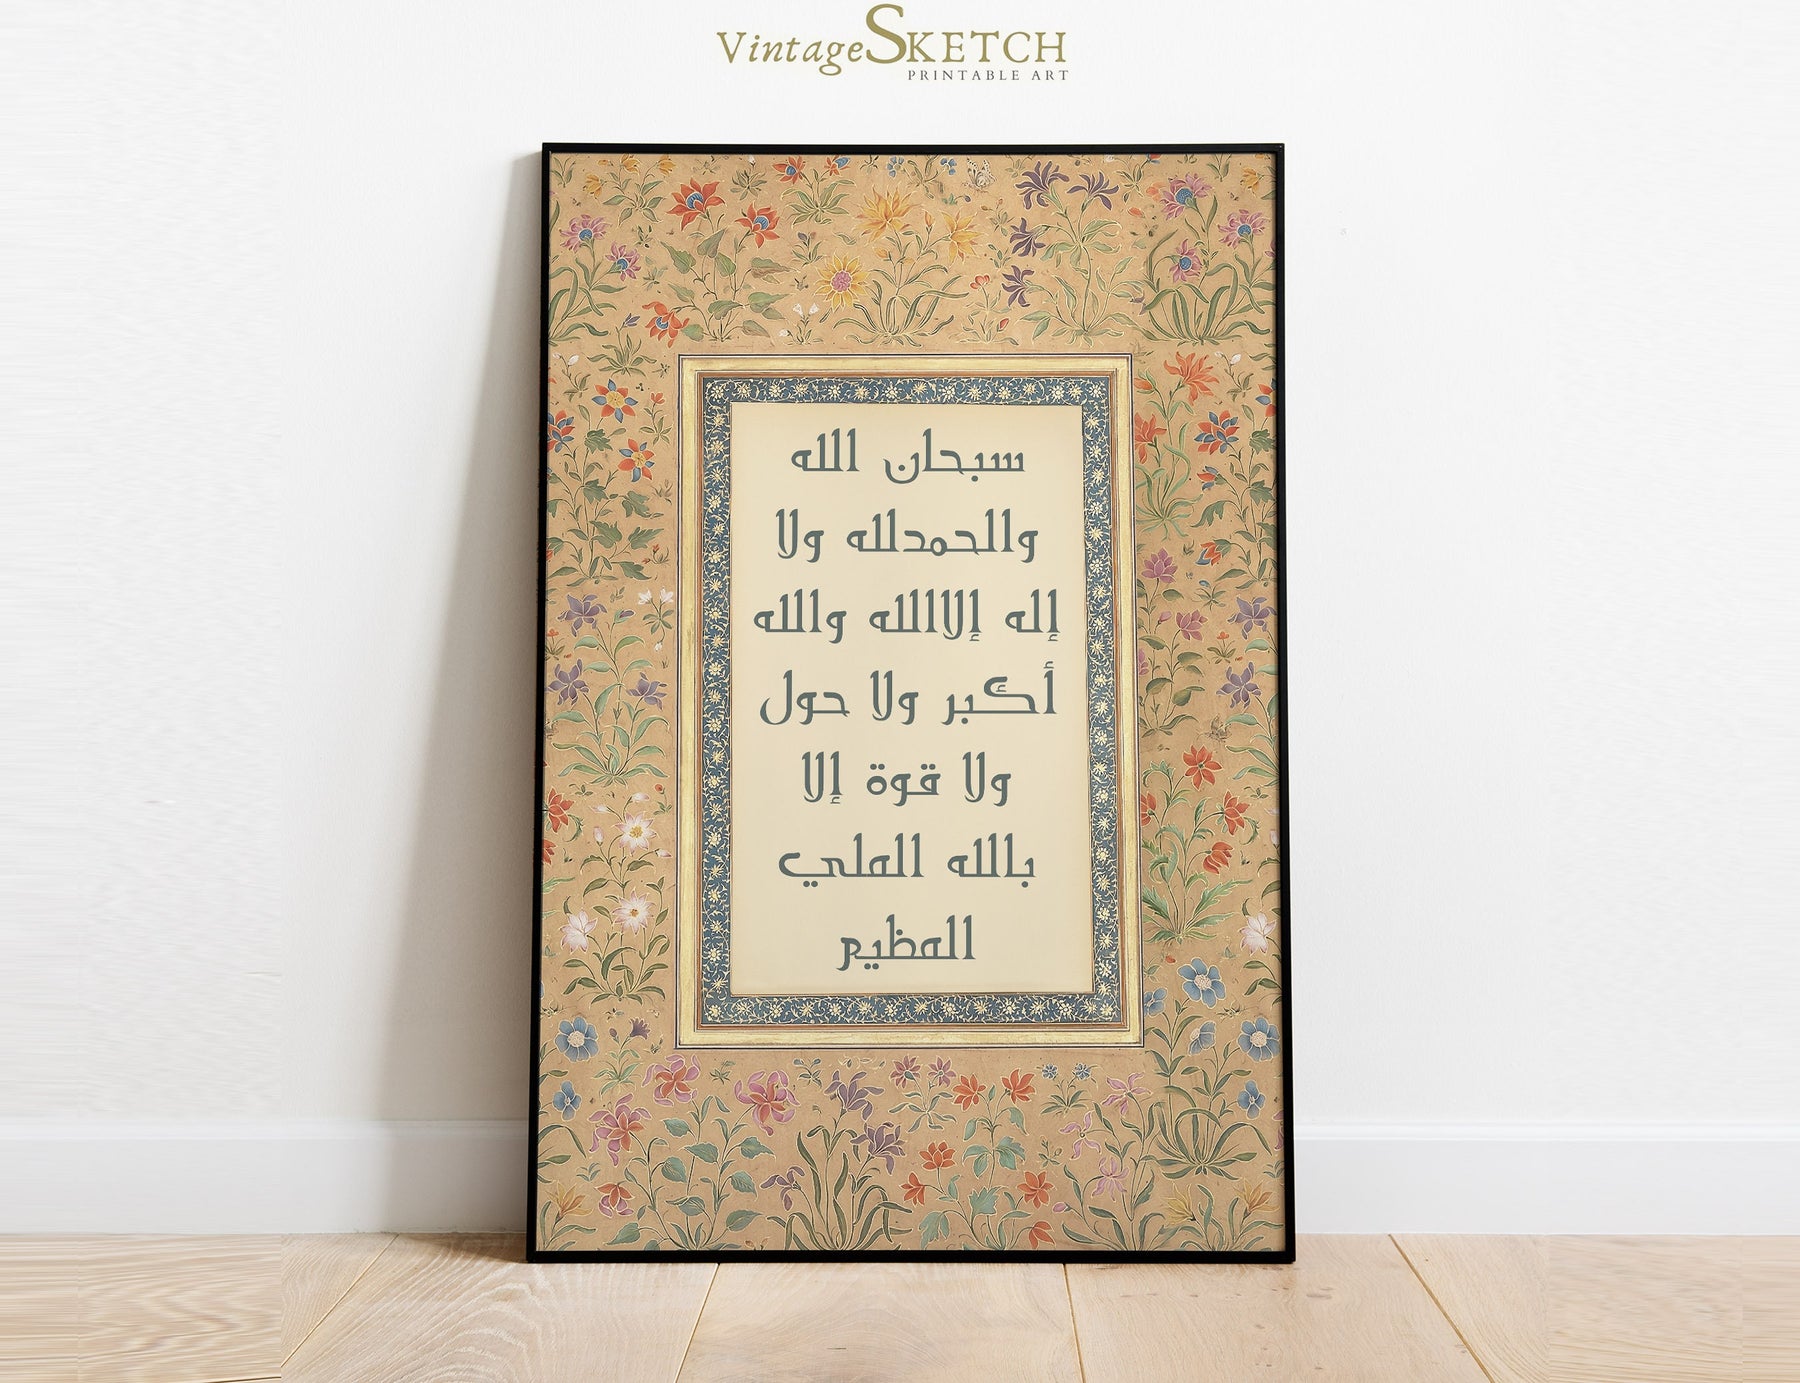 VintageSKETCH
PRINTABLE ART
سبحان الله
والحمدلله ولا
إله إلاالله والله
أكبر ولا حول
ولا قوة إلا
بالله العلي
العظيم